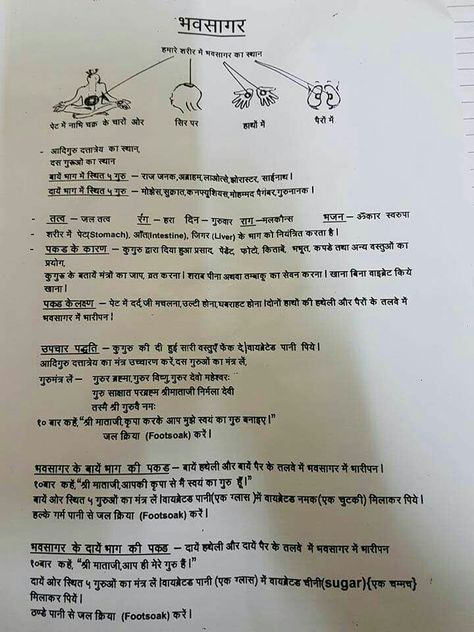 भवसागर
हमारे शरीर में भवसागर का स्थान
पेट में नाभि चक्र के चारों ओर
सिर पर
हाथों में
पैरों में
- आदिगुरु दत्तात्रेय का स्थान,
दस गुरूओं का स्थान
बायें भाग में स्थित ५ गुरु – राज जनक,अब्राहम,लाओत्से,झोरास्टर, साईनाथ।
दायें भाग में स्थित ५ गुरु – मोझेस,सुक्रात,कनफ्युशियस,मोहम्मद पैगंबर,गुरुनानक।
- तत्व – जल तत्व रंग – हरा दिन – गुरुवार राग – मलकौन्स भजन – ॐकार स्वरुपा
- शरीर में पेट(Stomach), आँत(Intestine), जिगर (Liver) के भाग को नियंत्रित करता है।
- पकड के कारण – कुगुरु द्वारा दिया हुआ प्रसाद, पेडेंट, फोटो, किताबें, भभूत, कपडे तथा अन्य वस्तुओं का
प्रयोग,
कुगुरू के बतायें मंत्रों का जाप, व्रत करना। शराब पीना अथवा तम्बाकू का सेवन करना। खाना बिना वाइब्रेट किये
खाना।
पकड के लक्षण – पेट में दर्द,जी मचलना,उल्टी होना,घबराहट होना।दोनों हाथों की हथेली और पैरों के तलवे में
भवसागर में भारीपन।
उपचार पद्धति – कुगुरु की दी हुई सारी वस्तुएँ फेंक दे।वायब्रेटेड पानी पिये।
आदिगुरु दत्तात्रेय का मंत्र उच्चारण करें,दस गुरुओं का मंत्र लें।
गुरुमंत्र लें – गुरुर ब्रह्मा,गुरुर विष्णु,गुरुर देवो महेश्वरः
गुरु साक्षात परब्रह्म श्रीमाताजी निर्मला देवी
तस्मै श्री गुरुवै नमः
१० बार कहें,"श्री माताजी,कृपा करके आप मुझे स्वयं का गुरु बनाइए।"
जल क्रिया (Footsoak) करें।
भवसागर के बायें भाग की पकड – बायें हथेली और बायें पैर के तलवे में भवसागर में भारीपन।
१०बार कहें,"श्री माताजी,आपकी कृपा से मैं स्वयं का गुरु हूँ।"
बायें ओर स्थित ५ गुरुओं का मंत्र लें।वायब्रेटेड पानी(एक ग्लास )में वायब्रेटेड नमक(एक चुटकी) मिलाकर पियें।
हल्के गर्म पानी से जल क्रिया (Footsoak) करें।
भवसागर के दायें भाग की पकड – दायें हथेली और दायें पैर के तलवे में भवसागर में भारीपन
१०बार कहें, "श्री माताजी,आप ही मेरे गुरु है।"
दायें ओर स्थित ५ गुरुओं का मंत्र लें।वायब्रेटेड पानी (एक ग्लास) में वायब्रेटेड चीनी(sugar){एक चम्मच}
मिलाकर पियें।
ठण्डे पानी से जल क्रिया (Footsoak) करें।